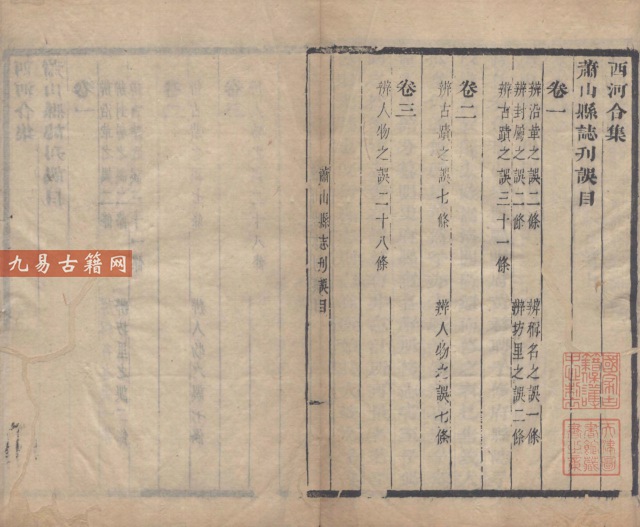 西河合集
蕭山縣誌刊誤目
卷一
辨沿革之誤二條
辨稱名之誤一條
辨封屬之誤二條
辨坊里之誤二條
辨古蹟之誤三十一條
卷二
辨古蹟之誤七條
辨人物之誤七條
卷三
辨人物之誤二十八條
蕭山縣志刊誤目
九易古籍网